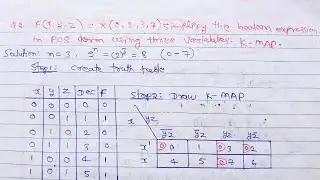 Q2 F(x,y,z) = π(0,2,3,7) simplify the boolean expression
in POS term using three variables K-MAP.
Solution: n=3, 2ⁿ = (2)³ = 8 (0-7)
Step1: Create truth table
x y z Dec F
Step2: Draw K-MAP
0 0 0 0 0
0 0 1 1 1
0 1 0 2 0
0 1 1 3 0
1 0 0 4 1
1 0 1 5 1
x yz
x' 0 0 1 0 3 0 2
x 4 5 0 7 6